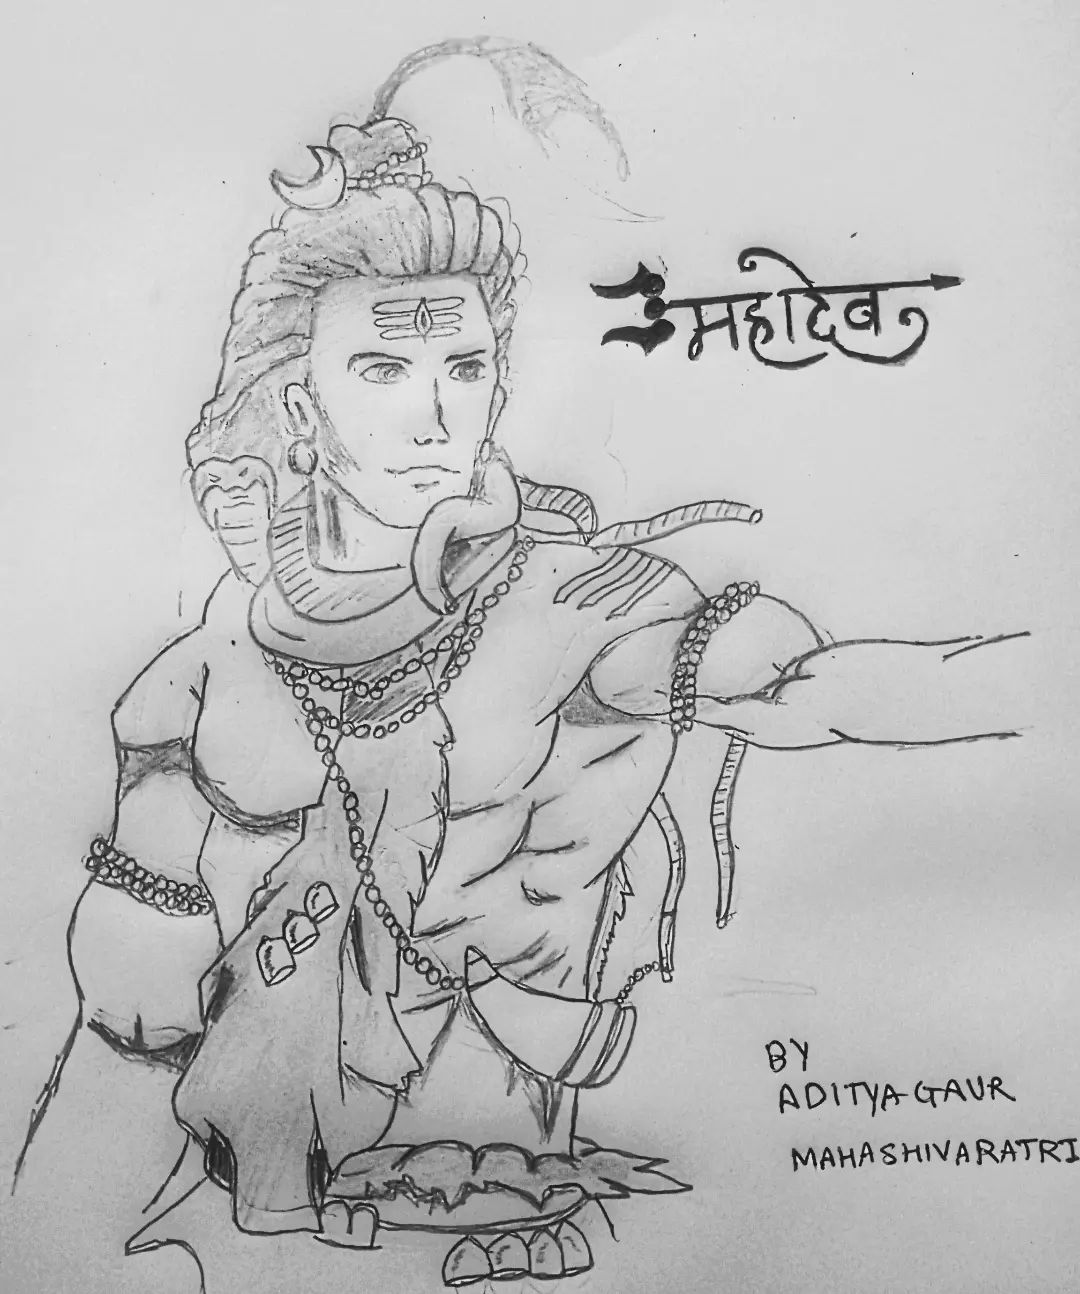 महादेव
BY
ADITYA GAUR
MAHASHIVARATRI